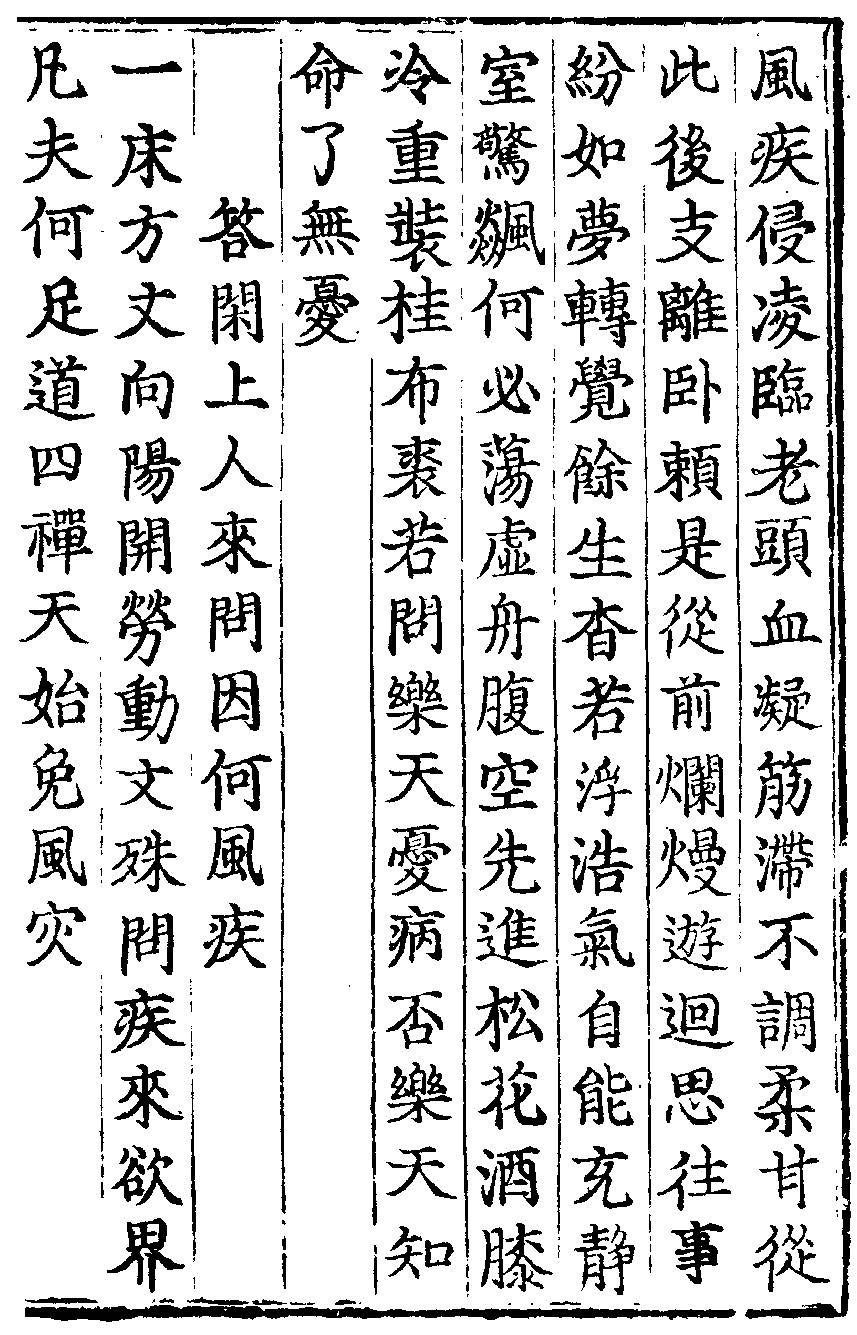 風疾侵凌臨老頭血凝筋滯不調柔甘從
此後支離卧賴是從前爛熳遊迴思往事
紛如夢轉覺餘生杳若浮浩氣自能充静
室驚飇何必蕩虛舟腹空先進松花酒膝
冷重裝桂布裘若問樂天憂病否樂天知
命了無憂
荅閑上人來問因何風疾
一床方丈向陽開勞動文殊問疾來欲界
凡夫何足道四禪天始免風灾